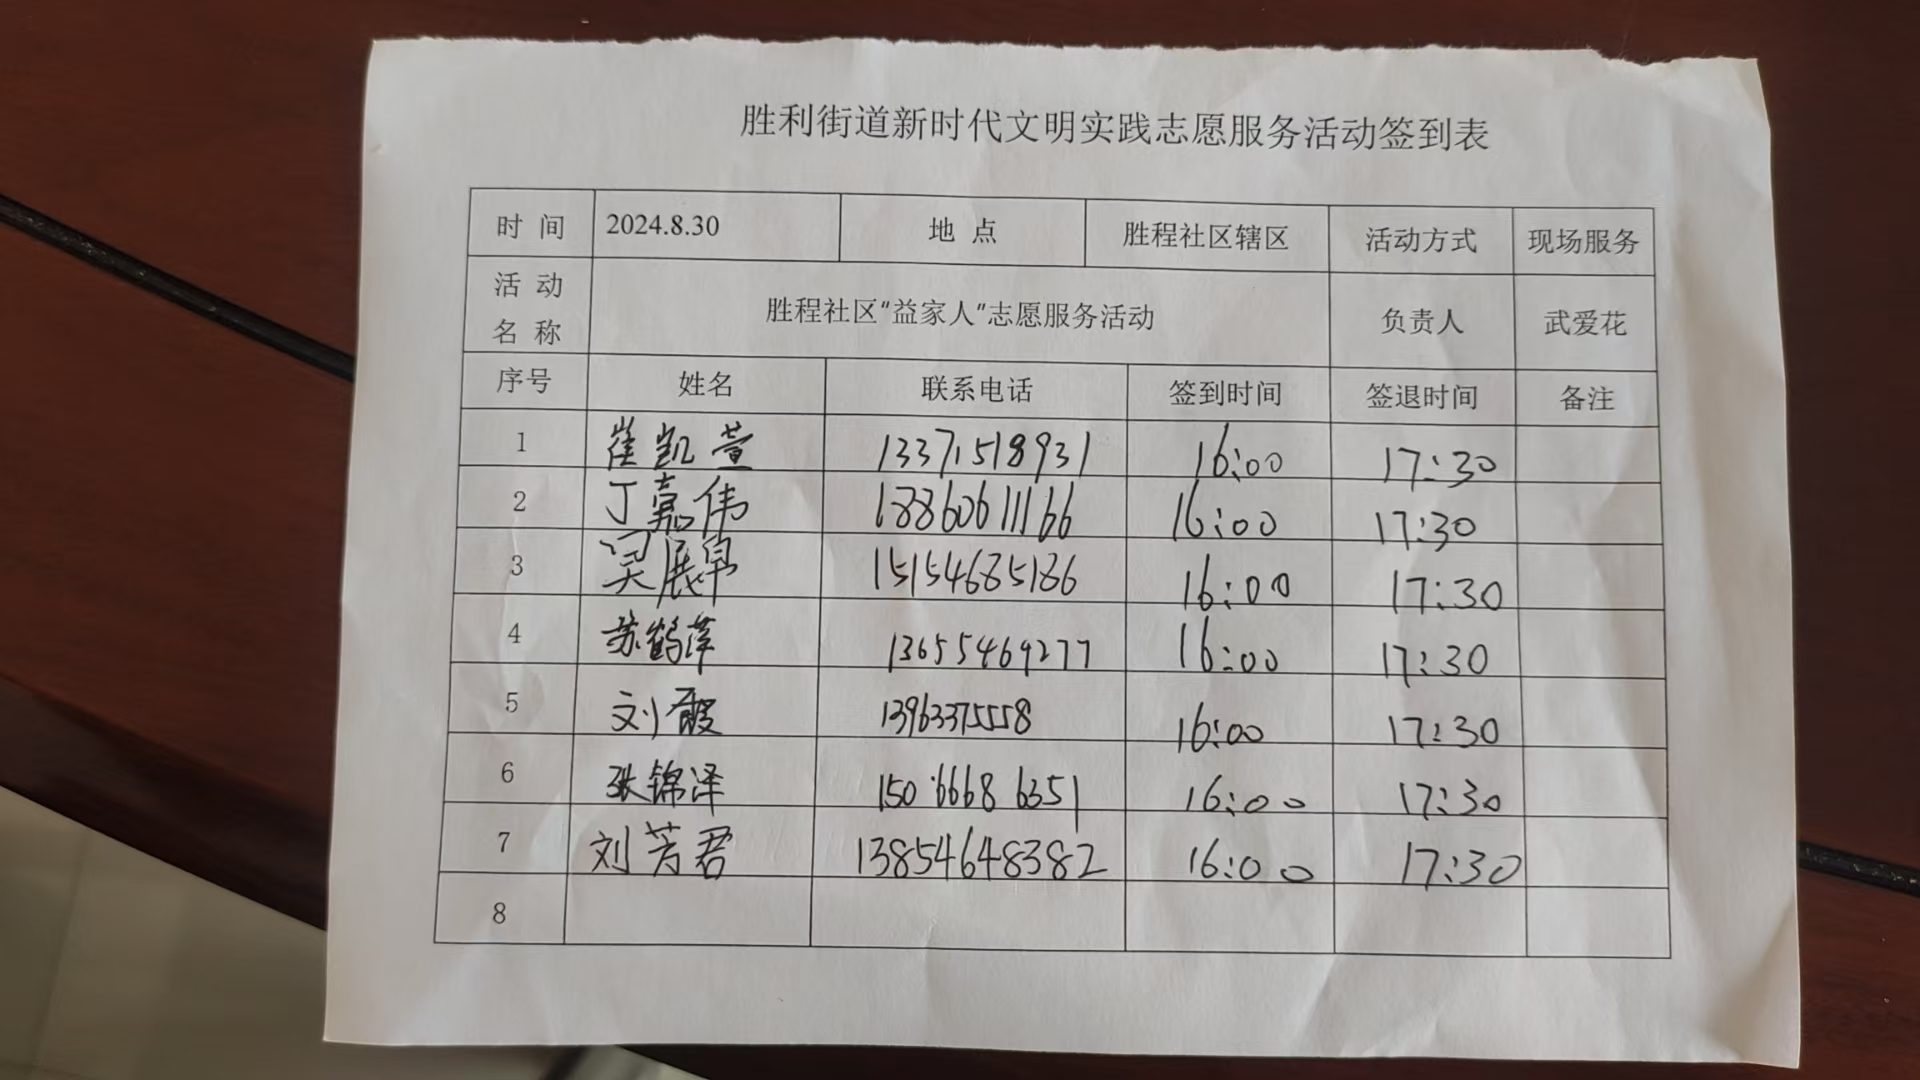 胜利街道新时代文明实践志愿服务活动签到表
时 间 2024.8.30 地 点 胜程社区辖区 活动方式 现场服务
活 动 名 称 胜程社区“益家人”志愿服务活动 负责人 武爱花
序号 姓名 联系电话 签到时间 签退时间 备注
1 崔凯萱 13371518931 16:00 17:30
2 丁嘉伟 18860611166 16:00 17:30
3 吴展帛 15154685186 16:00 17:30
4 苏鹤萍 13655469277 16:00 17:30
5 刘霞 13963375558 16:00 17:30
6 张锦泽 150 6668 6351 16:00 17:30
7 刘芳君 13854648382 16:00 17:30
8